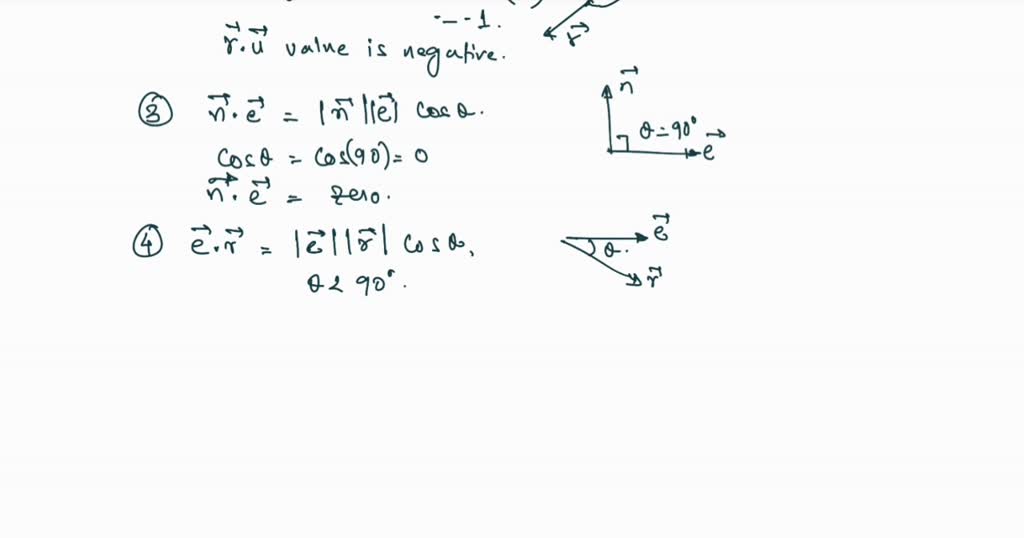 ·– -1.
r⃗
r⃗.u⃗ value is negative.
③ n⃗.e⃗ = |n⃗||e⃗| cosθ.
n⃗
θ=90°
e⃗
cosθ = cos(90)=0
n⃗.e⃗ = zero.
④ e⃗.r⃗ = |e⃗||r⃗| cosθ,
e⃗
θ.
r⃗
θ < 90°.